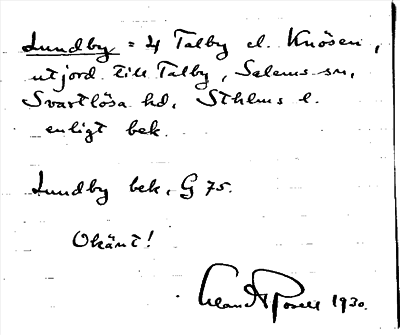 Lundby = 4 Talby el. Knösen,
utjord till Talby, Salems sn,
Svartlösa hd, Sthlms l.
enligt bek.
Lundby bek. G 75.
Okänt!
1930.